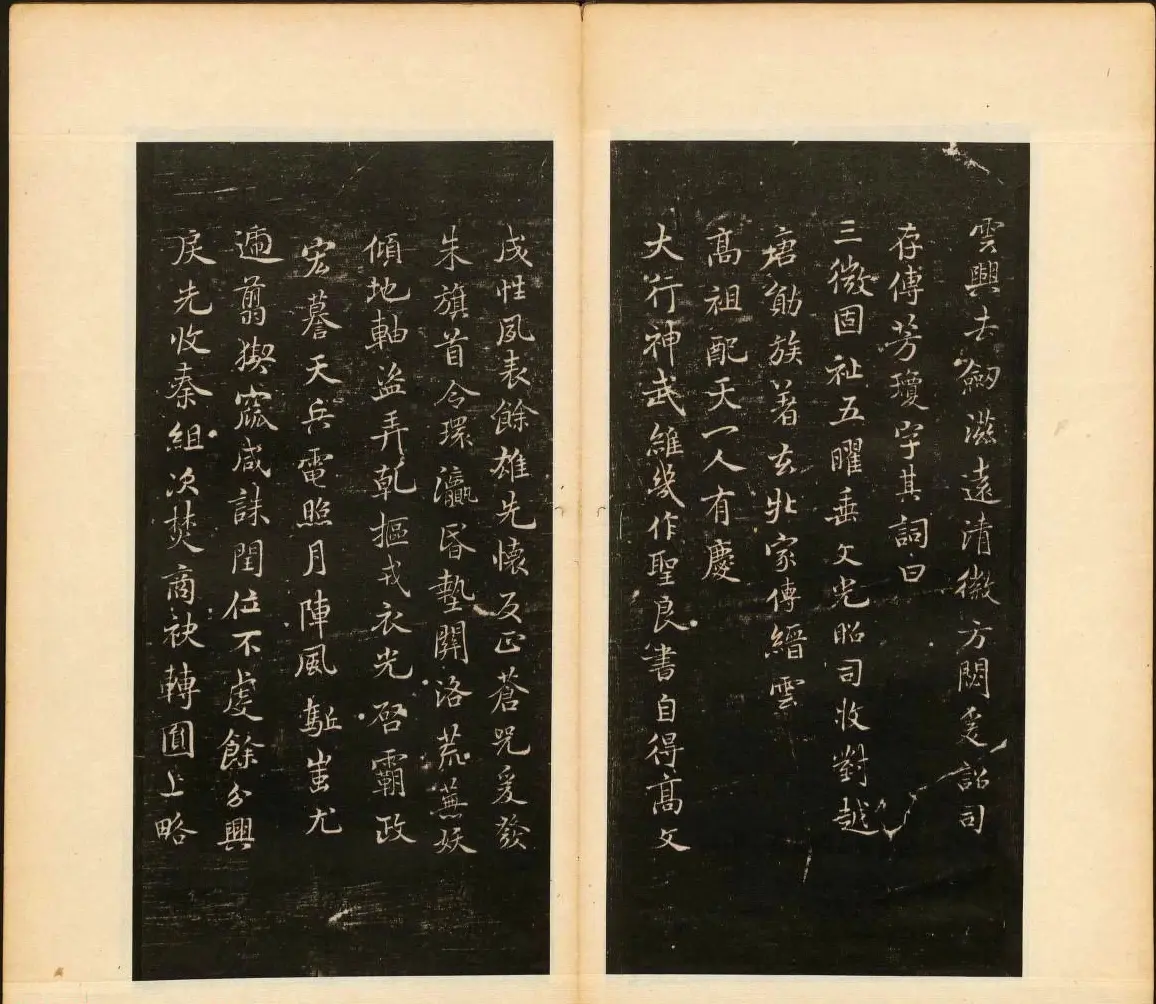 雲興去劒滋遠清徽方閟爰詔司
存傳芳瓊字其詞曰
三微固祉五曜垂文光昭司牧對越
唐勛族著玄牝家傳縉雲
高祖配天一人有慶
大行神武維幾作聖良書自得高文
成性夙表餘雄先懷反正蒼兕爰發
朱旗首令環瀛昏墊關洛荒蕪妖
傾地軸盜弄乾樞戎衣光啓霸政
宏謩天兵電照月陣風駈蚩尤
遄翦猰窳咸誅閏位不虔餘分興
戾先收秦組次焚商袂轉圓上略